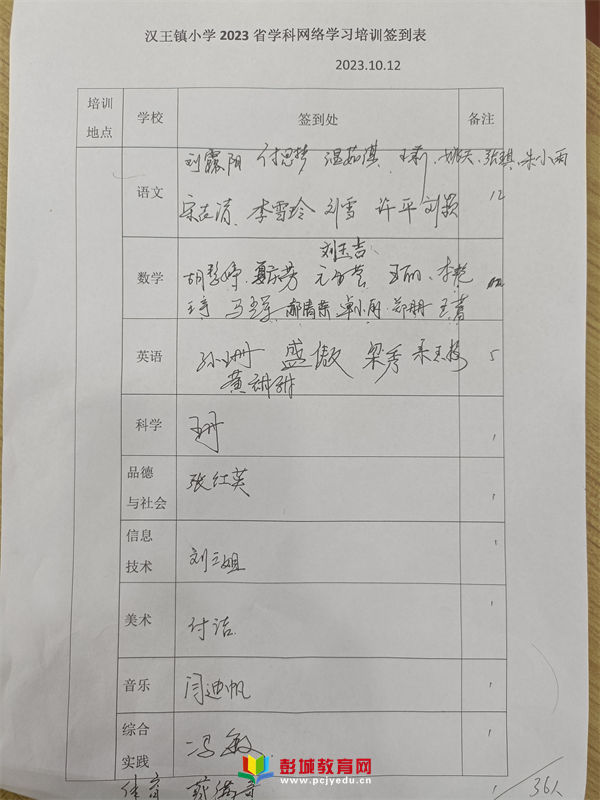 汉王镇小学 2023 省学科网络学习培训签到表
2023.10.12
培训地点 学校 签到处 备注
语文 刘露阳 付思梦 温茹淇 王莉 姚天 张琪 朱小雨
李雪玲 刘雪 许平 刘颖 12
刘玉吉
数学 王丽
马 郝清荣 卓小雨 郑朋 王菁
英语 孙小册 盛傲 梁秀 5
黄甜甜
科学 王丹 1
品德与社会 张红英 1
信息技术 刘三姐 1
美术 付洁 1
音乐 闫迪帆 1
综合实践 冯敏
体育 1 36人
彭城教育网
www.pcjyedu.cn